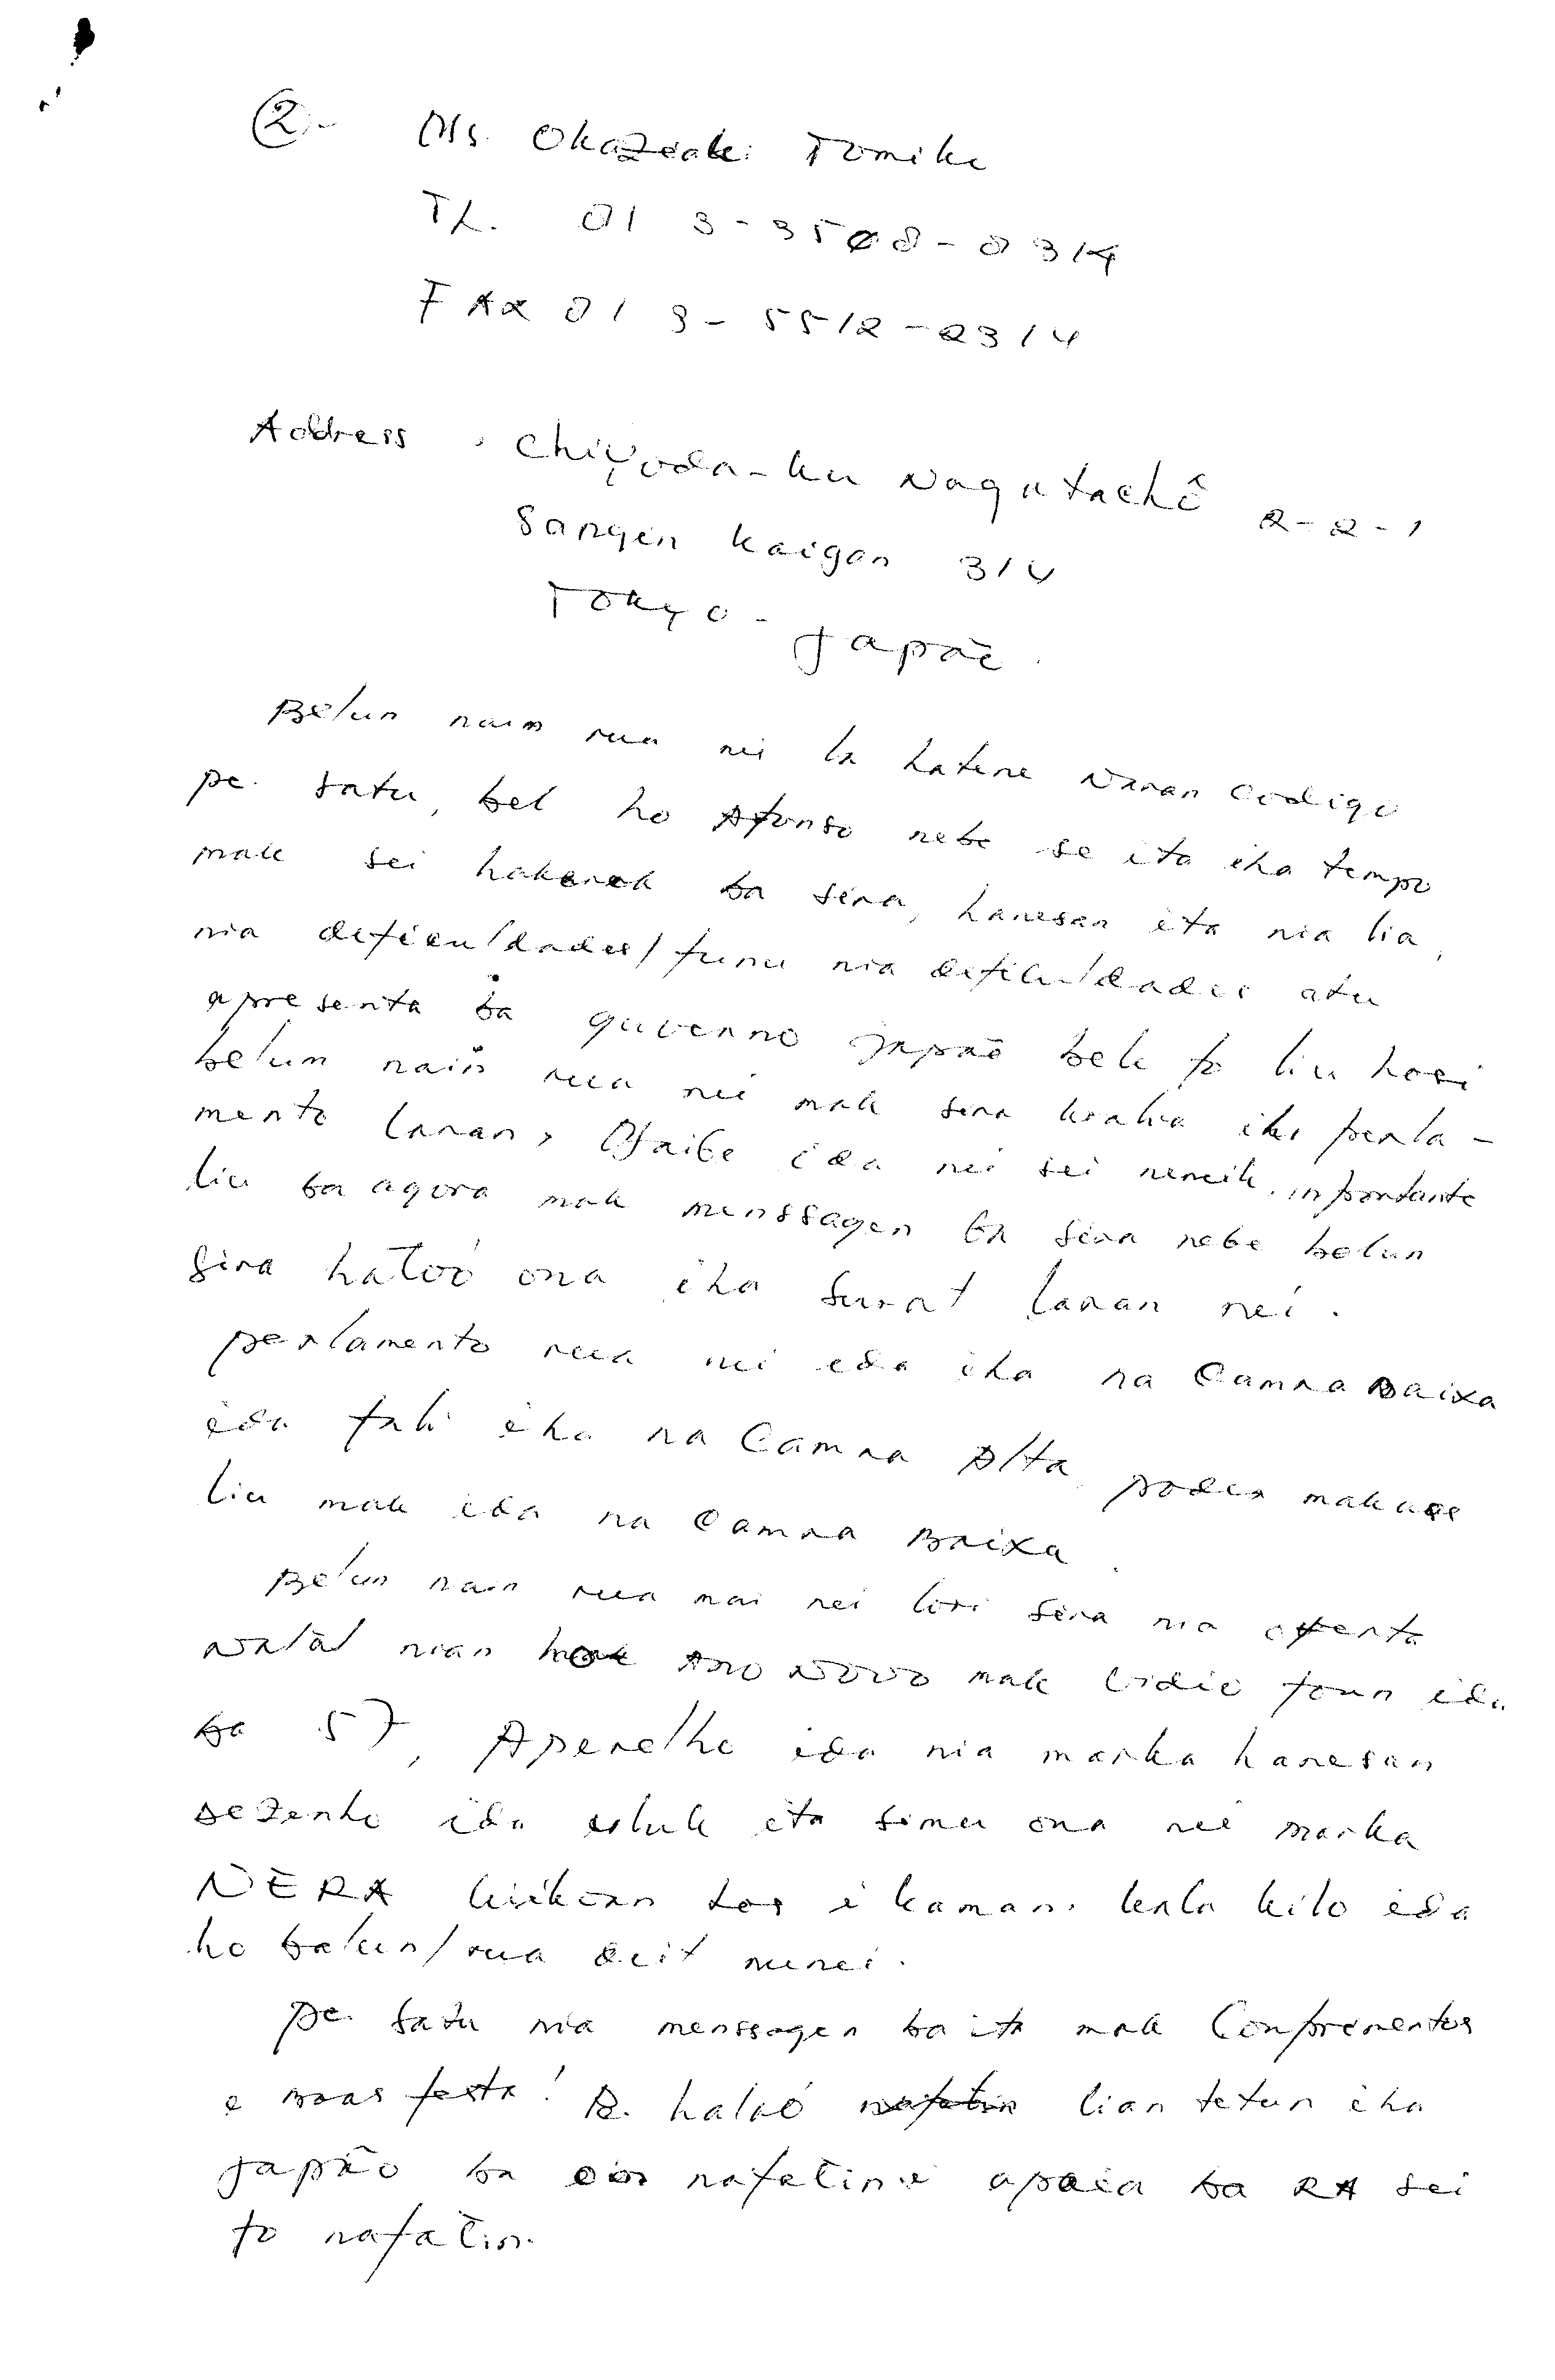 ②- Ms. Okazeaki Tomike
TL. 01 3-3508-0314
FAX 01 3-5512-2314
Address : Chiyoda-ku Nagatachô 2-2-1
Sangin kaigan 314
Tokyo - Japão.
Belun nain rua nei la hatene naran codigo
pe. satu, bel ho Afonso nebe se ita iha tempo
mak sei hakerek ba sira, hanesan ita nia lia,
nia deficuldades/funu nia deficuldades atu
apresenta ba guverno Japão bele fo liu hosi
belun nain rua nei mak sira kralia iha perla-
mento laran, Ofaibe ida nei sei neneik, inportante
liu ba agora mak menssagen ba sira nebe belun
sira hatoó ona iha surat laran nei.
perlamento rua nei ida iha na Camra Baixa
ida fali iha na Camra Alta, poder makaas
liu mak ida na Camra Baixa.
Belun nain rua mai nei lori sira nia oferta
Natál nian Ano Novo mak vidio foun ida
ba 57, Aperelho ida nia marka hanesan
dezenho ida uluk ita simu ona nei marka
NERA kiikoan los i kaman. kala kilo ida
ho balun/rua deit nunei.
pe. satu nia menssagen ba ita mak Conprementos
e Boas festa! R. halaó lian tetun iha
Japão ba oin nafatin i apoia ba RA sei
fo nafatin.